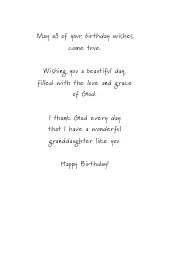 May all of your birthday wishes
come true.
Wishing you a beautiful day,
filled with the love and grace
of God.
I thank God every day
that I have a wonderful
granddaughter like you.
Happy Birthday!